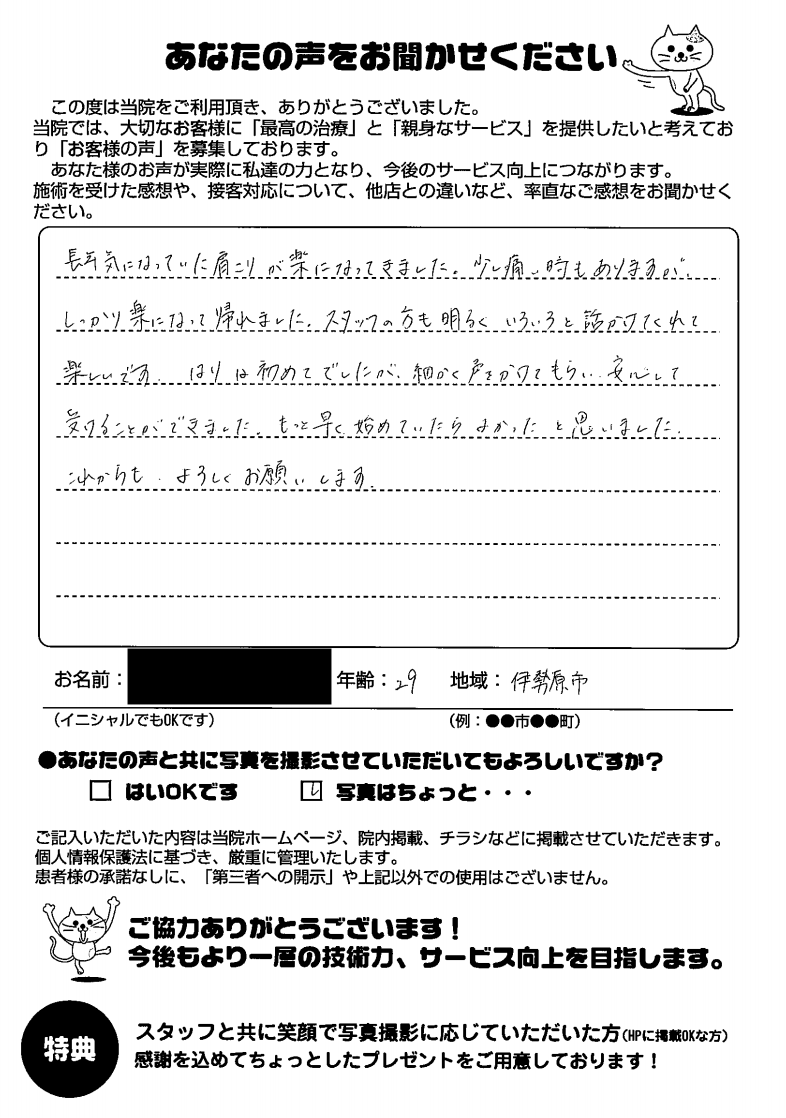 あなたの声をお聞かせください
この度は当院をご利用頂き、ありがとうございました。
当院では、大切なお客様に「最高の治療」と「親身なサービス」を提供したいと考えてお
り「お客様の声」を募集しております。
あなた様のお声が実際に私達の力となり、今後のサービス向上につながります。
施術を受けた感想や、接客対応について、他店との違いなど、率直なご感想をお聞かせく
ださい。
長年気になっていた肩こりが楽になってきました。少し痛い時もありますが、
しっかり楽になって帰れました。スタッフの方も明るく いろいろと話かけてくれて
楽しいです。 はりは初めてでしたが、細かく声をかけてもらい、安心して
受けることができました。もっと早く始めていたらよかったと思いました。
これからも、よろしくお願いします。
お名前： 年齢：29 地域：伊勢原市
（イニシャルでもOKです） （例：●●市●●町）
●あなたの声と共に写真を撮影させていただいてもよろしいですか？
□ はいOKです ☑ 写真はちょっと・・・
ご記入いただいた内容は当院ホームページ、院内掲載、チラシなどに掲載させていただきます。
個人情報保護法に基づき、厳重に管理いたします。
患者様の承諾なしに、「第三者への開示」や上記以外での使用はございません。
ご協力ありがとうございます！
今後もより一層の技術力、サービス向上を目指します。
特典
スタッフと共に笑顔で写真撮影に応じていただいた方（HPに掲載OKな方）
感謝を込めてちょっとしたプレゼントをご用意しております！